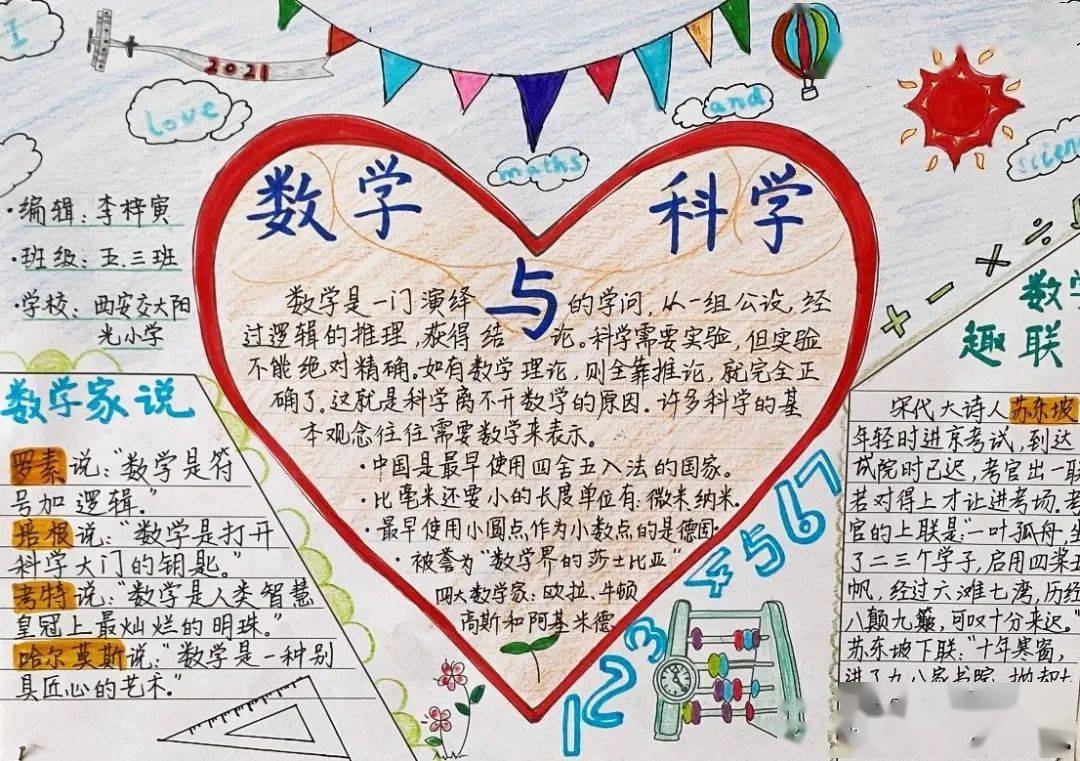 I
2021
love
maths
and
scien
·编辑：李梓寅
·班级：五.三班
·学校：西安交大阳
光小学
数学
与
科学
数学是一门演绎的学问，从一组公设，经
过逻辑的推理，获得结论。科学需要实验，但实验
不能绝对精确。如有数学理论，则全靠推论，就完全正
确了。这就是科学离不开数学的原因。许多科学的基
本观念往往需要数学来表示。
·中国是最早使用四舍五入法的国家。
·比毫米还要小的长度单位有：微米纳米.
·最早使用小圆点作为小数点的是德国·
·被誉为“数学界的莎士比亚”
四大数学家：欧拉、牛顿
高斯和阿基米德
数学家说
罗素说：“数学是符
号加逻辑。”
培根说：“数学是打开
科学大门的钥匙。”
考特说：“数学是人类智慧
皇冠上最灿烂的明珠。”
哈尔莫斯说：“数学是一种别
具匠心的艺术。”
+ - × ÷
数学
趣联
宋代大诗人苏东坡
年轻时进京考试，到达
试院时已迟，考官出一联
若对得上才让进考场。考
官的上联是：“一叶孤舟，坐
了二三个学子，启用四桨五
帆，经过六滩七湾，历经
八颠九簸，可叹十分来迟。”
苏东坡下联：“十年寒窗，
进了九八家书院，抛却七
1 2 3 4 5 6 7